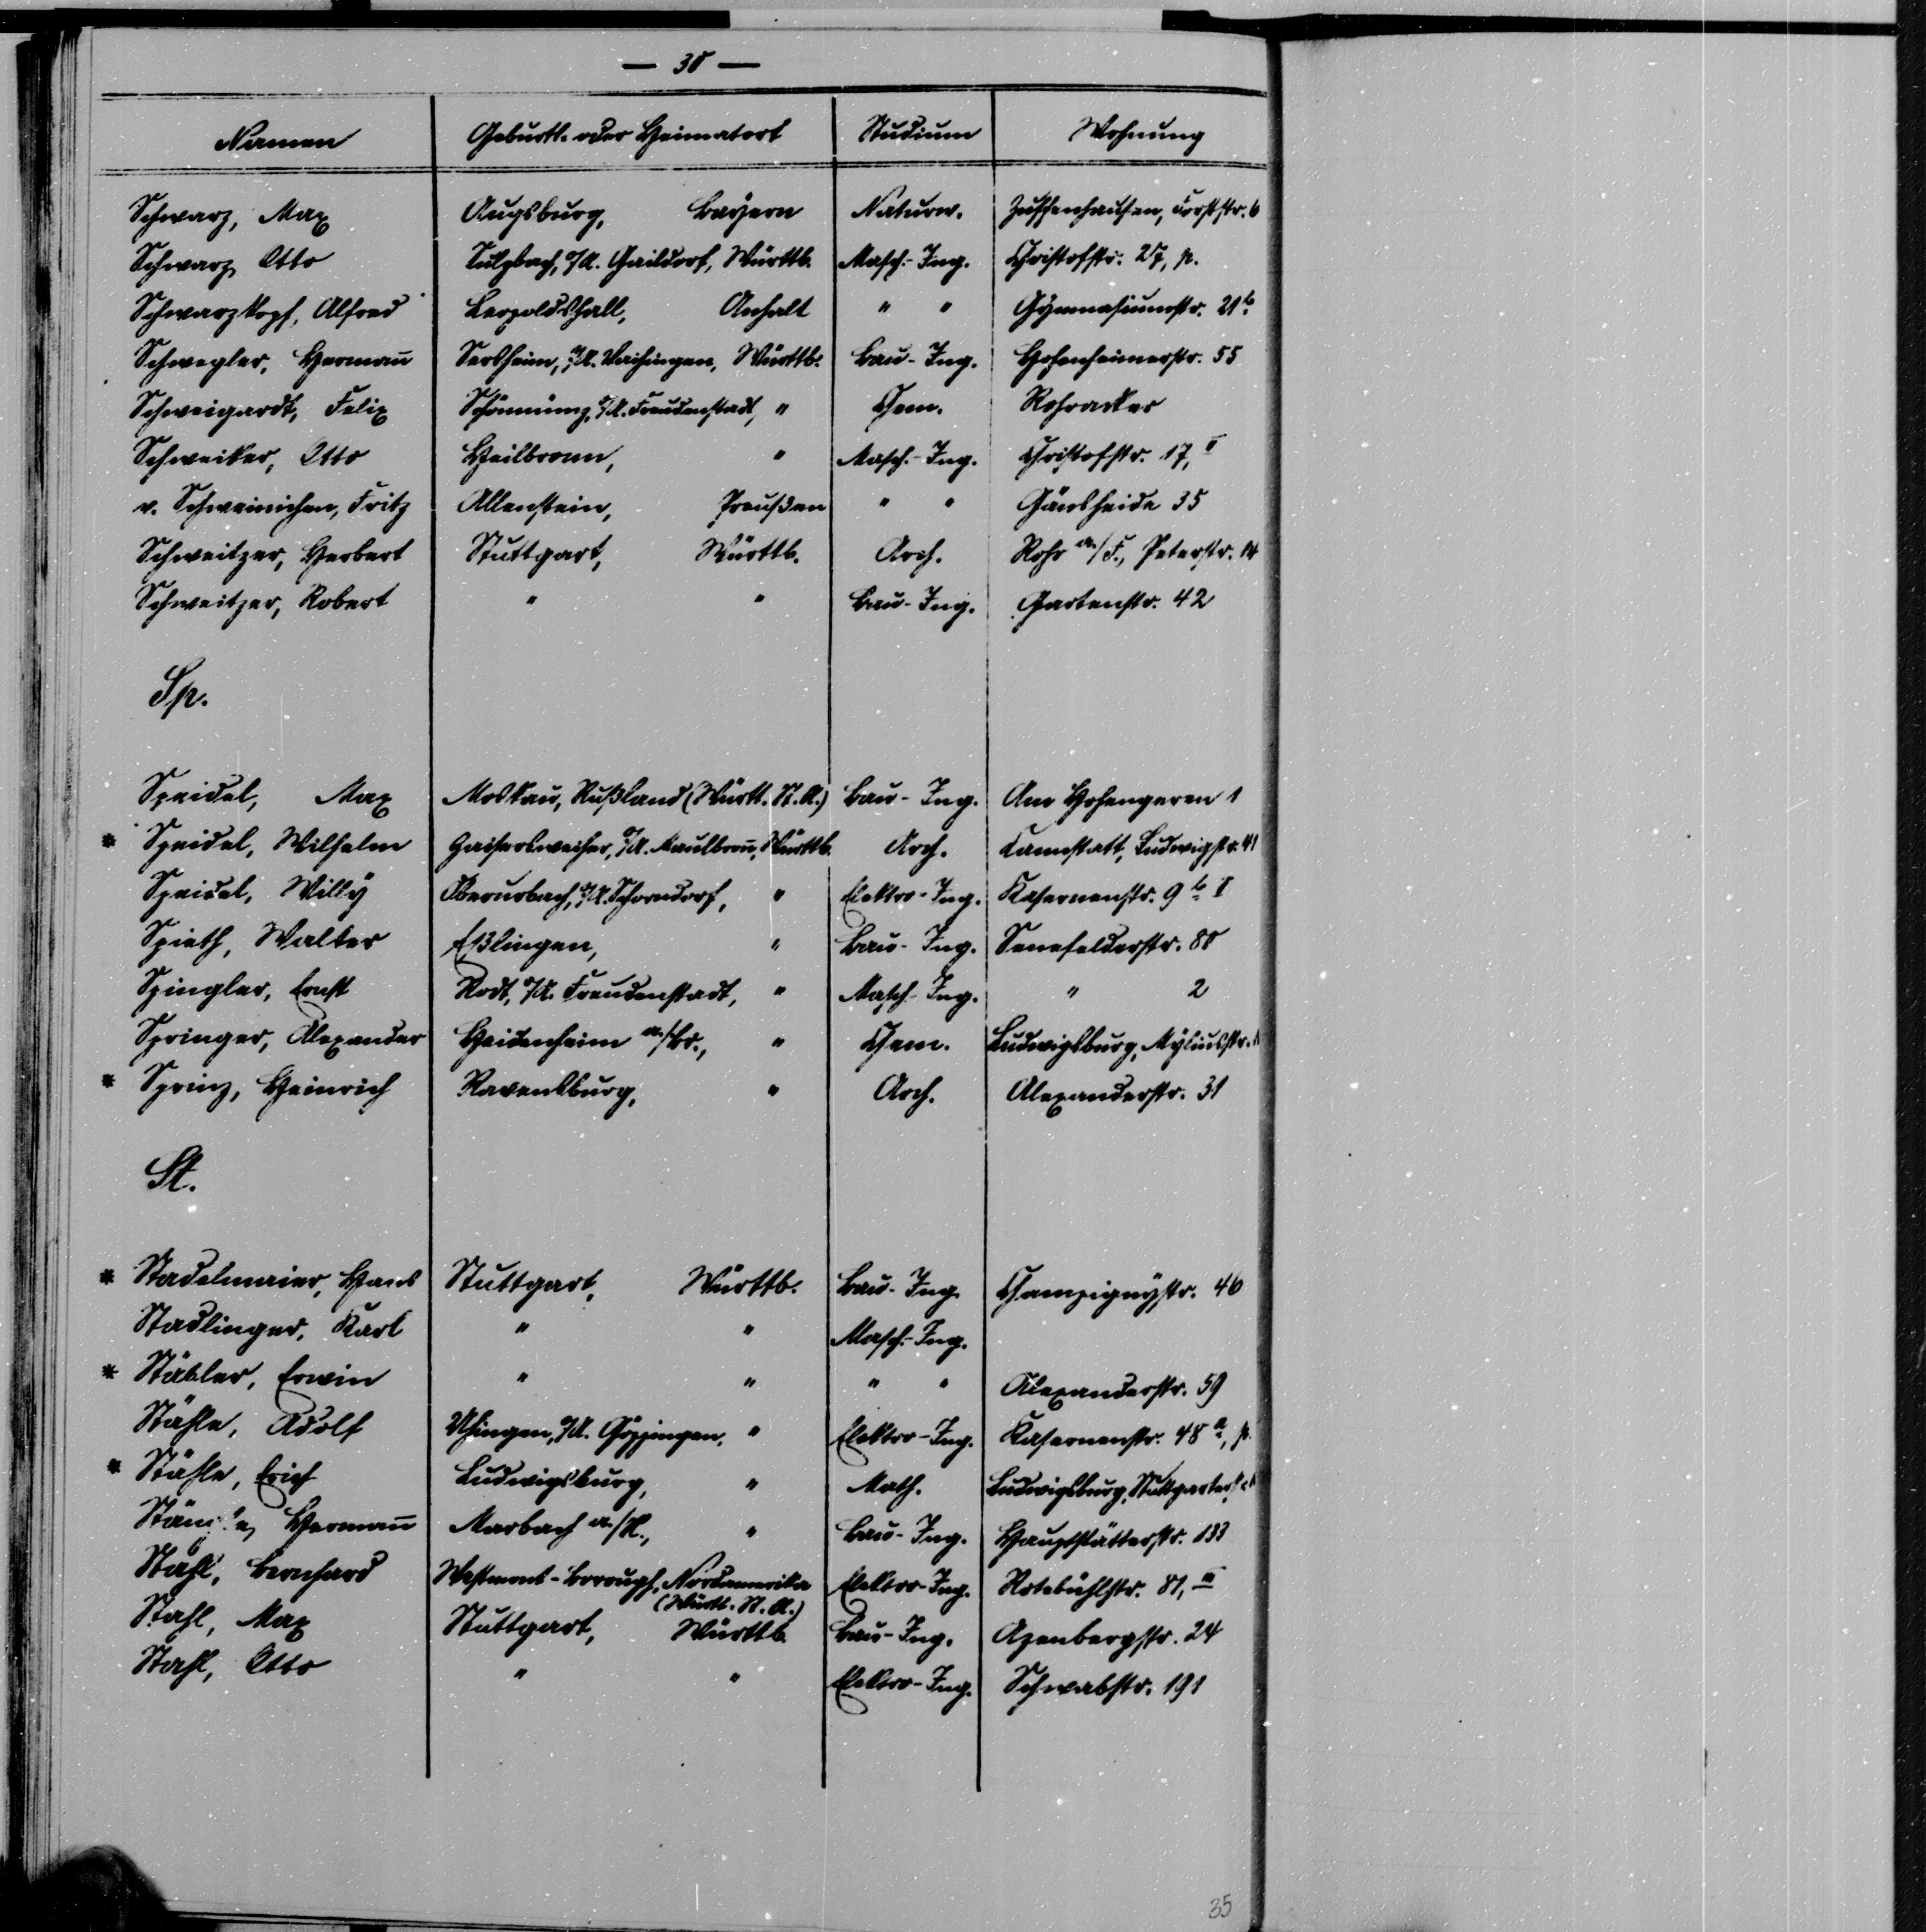 — 38 —
Namen Geburts- oder Heimatort Studium Wohnung
Schwarz, Max Augsburg, Bayern Naturw. Zuffenhausen, Forststr. 6
Schwarz, Otto Sulzbach, O/A. Gaildorf, Württb. Masch.-Ing. Christofstr. 27, p.
Schwarzkopf, Alfred Leopoldshall, Anhalt " " Gymnasiumstr. 21 b
Schwegler, Hermañ Sersheim, O/A. Vaihingen, Württb. Bau-Ing. Hohenheimerstr. 55
Schweigardt, Felix Schönmünz, O/A. Freudenstadt, " Chem. Rohracker
Schweiker, Otto Heilbronn, " Masch.-Ing. Christofstr. 17, II
v. Schweinichen, Fritz Allenstein, Preußen " " Gänsheide 35
Schweitzer, Herbert Stuttgart, Württb. Arch. Rohr a./F., Peterstr. 14
Schweitzer, Robert " " Bau-Ing. Gartenstr. 42
Sp.
Speidel, Max Moskau, Rußland (Württ. St. A.) Bau-Ing. Am Hohengeren 1
* Speidel, Wilhelm Zaisersweiher, O/A. Maulbroñ, Württb. Arch. Cannstatt, Ludwigstr. 41
Speidel, Willy Oberurbach, O/A. Schorndorf, " Elektro-Ing. Kasernenstr. 9 b I
Spieth, Walter Eßlingen, " Bau-Ing. Senefelderstr. 88
Spingler, Ernst Rodt, O/A. Freudenstadt, " Masch.-Ing. " 2
Springer, Alexander Heidenheim a./Br., " Chem. Ludwigsburg, Myliusstr.
* Sprinz, Heinrich Ravensburg, " Arch. Alexanderstr. 31
St.
* Stadelmaier, Hans Stuttgart, Württb. Bau-Ing. Champignystr. 46
Stadlinger, Karl " " Masch.-Ing.
* Stäbler, Erwin " " " " Alexanderstr. 59
Stähle, Adolf Uhingen, O/A. Göppingen, " Elektro-Ing. Kasernenstr. 48 a, p.
* Stähle, Erich Ludwigsburg, " Math. Ludwigsburg, Stuttgarterstr.
Hermañ Marbach a./N., " Bau-Ing. Hauptstätterstr. 133
Stahl, Bernhard Westmont-Borough, Nordamerika Elektro-Ing. Rotebühlstr. 81, III
(Württ. St. A.)
Stahl, Max Stuttgart, Württb. Bau-Ing. Azenbergstr. 24
Stahl, Otto " " Elektro-Ing. Schwabstr. 191
35